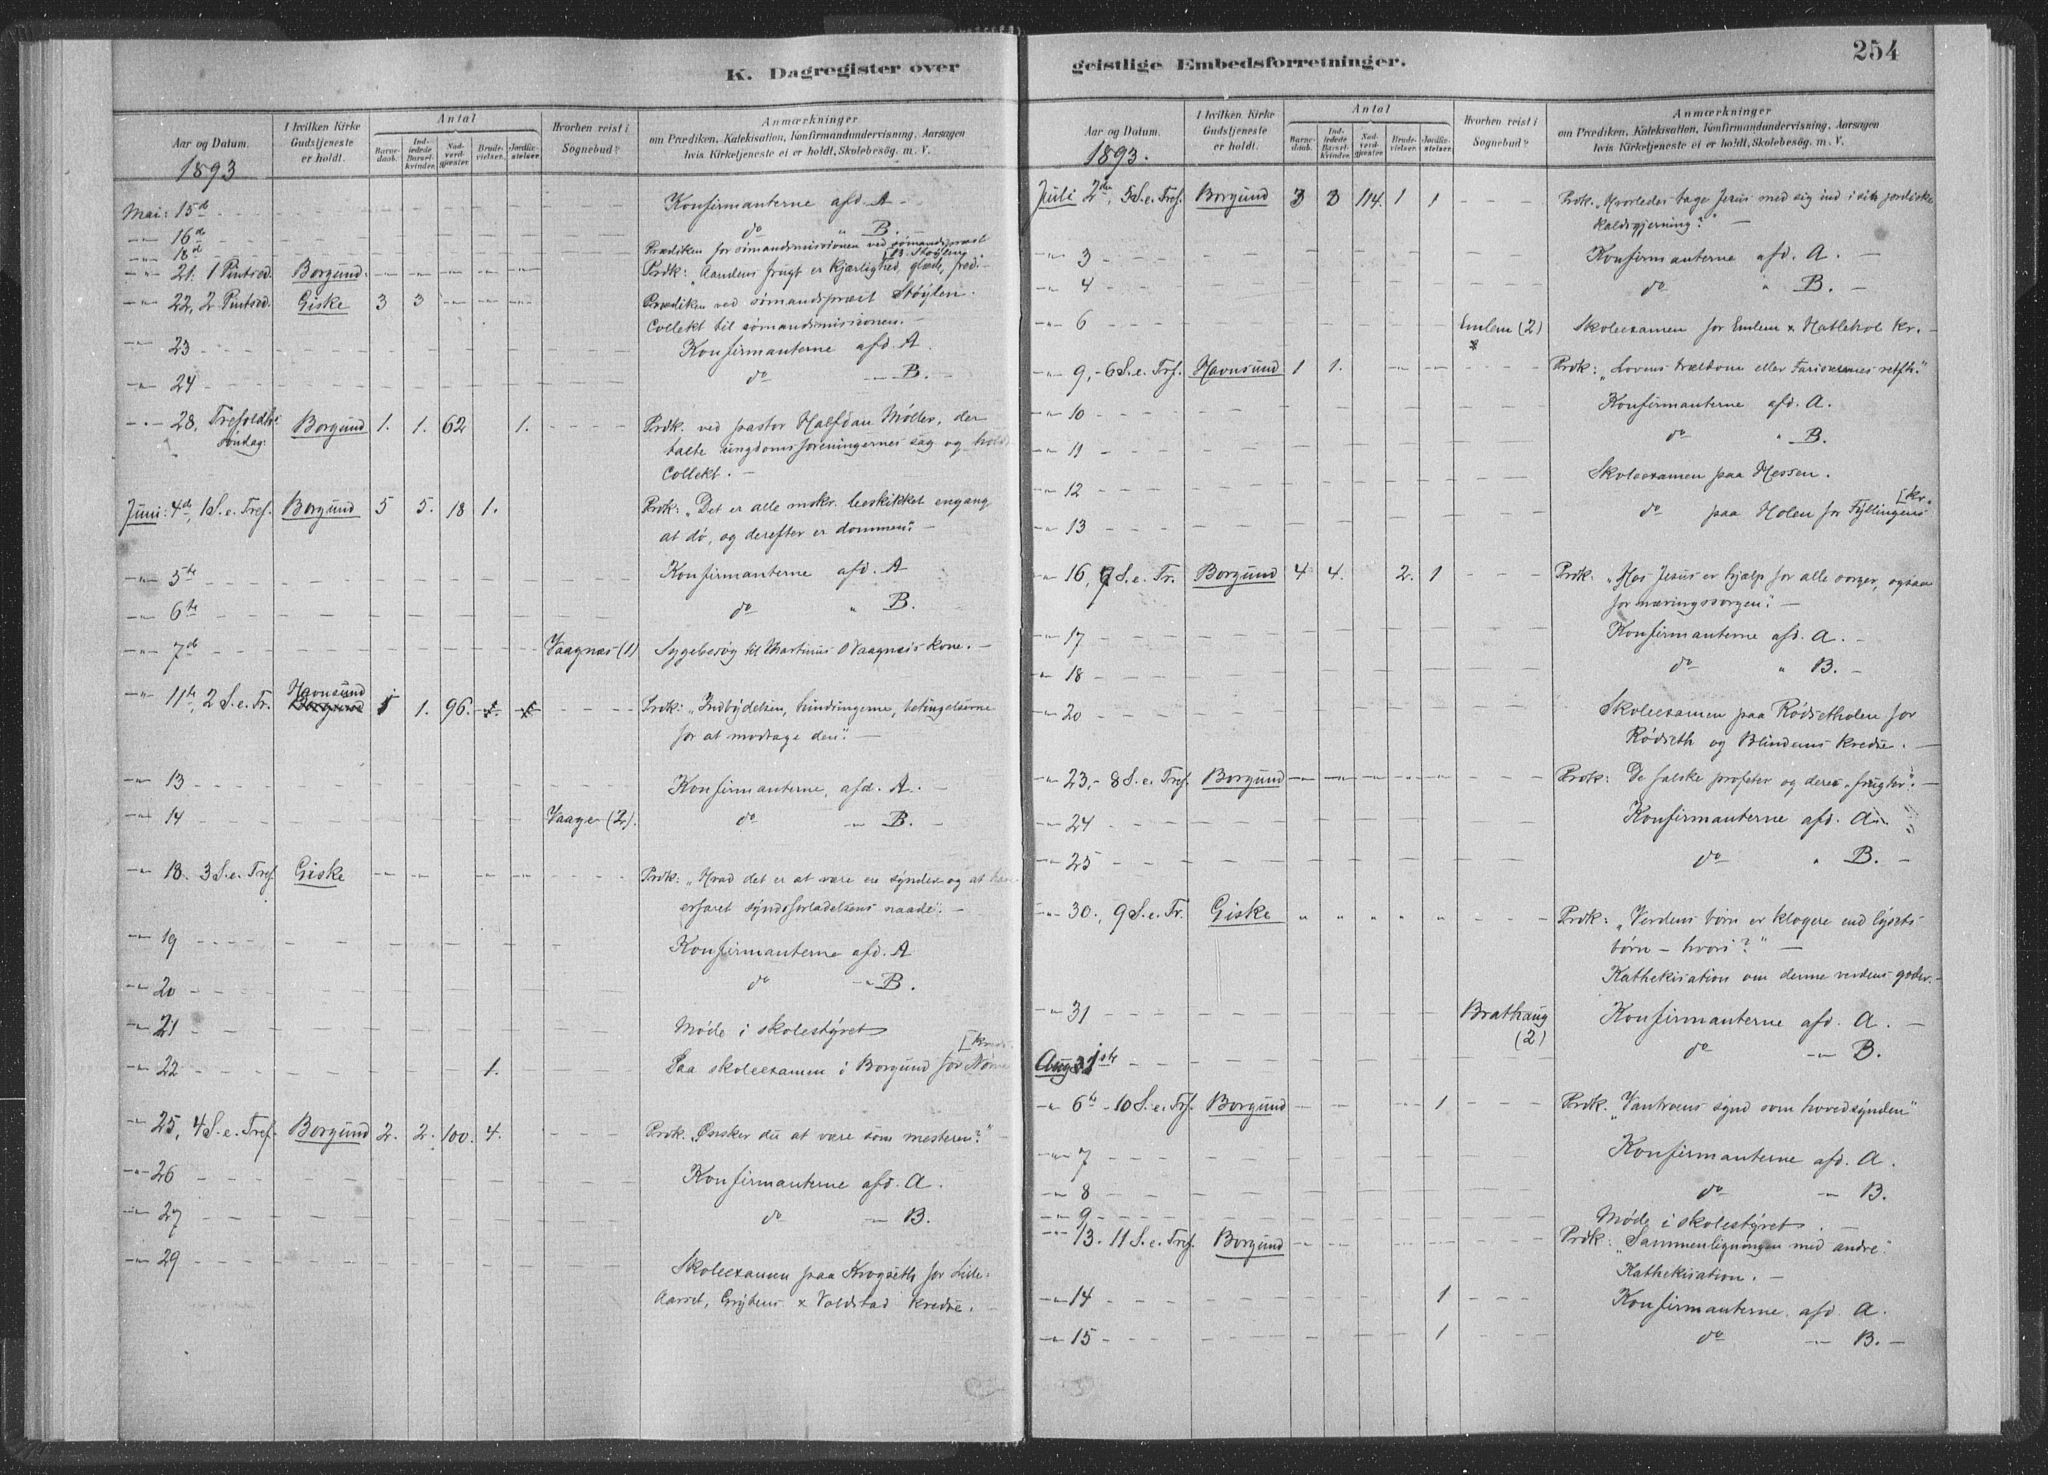 K. Dagregister over
Aar og Datum.
I hvilken Kirke Gudstjeneste er holdt.
Antal
Barnedaab.
Indledede Barselkvinder.
Nadverdgjester
Brudevielser.
Jordfæstelser.
Hvorhen reist i Sognebud?
Anmærkninger
om Prædiken, Katekisation, Konfirmandundervisning, Aarsagen
hvis Kirketjeneste ei er holdt, Skolebesøg. m. V.
1893
Mai: 15d Konfirmanterne afd. A
16d do " B.
18d Prædiken for sømandsmissionen ved sømandspræst
21. 1 Pintsed. Borgund. Prdk: "Aandens frugt er kjærlighed, glæde, fred.
22, 2 Pintsed. Giske 3 3 Prædiken ved sømandspræst Støylen.
Collekt til sømandsmissionen.
23 Konfirmanterne afd. A.
24 do B.
28, Trefoldhs. søndag. Borgund 1. 1. 62 1. Prdk. ved pastor Halfdan Møller, der
talte ungdomsforeningernes sag og holdt
Collekt.
Juni: 4de, 1 S. e. Tref. Borgund 5 5. 18 1. Prdk: "Det er alle mskr. beskikket engang
at dø, og derefter er dommen".
5te Konfirmanterne afd. A
6te do " B.
7d Vaagnæs (1) Sygebesøg til Martinus O Vaagnæs's kone.
11te, 2 S. e. Tr. Havnsund 1 1. 96. Prdk: "Indbydelsen, hindringerne, betingelserne
for at modtage den".
13 Konfirmanterne, afd. A.
14 Vaage (2). do B.
18. 3 S. e. Tref. Giske Prdk: "Hvad det er at være en synder og at have
erfaret syndsforladelsens naade".
19 Konfirmanterne afd. A
20 do B.
21 Møde i skolestyret
22 1. Paa skoleexamen i Borgund for
25, 4 S. e. Tref. Borgund 2. 2. 100. 4. Prdk. Ønsker du at være som mesteren?"
26 Konfirmanterne afd. A.
27 do B.
29 Skoleexamen paa Krogseth for Lide-
Aarset, Grytens x Valdstad kredse.
geistlige Embedsforretninger.
254
Aar og Datum.
I hvilken Kirke Gudstjeneste er holdt.
Antal
Barnedaab.
Indledede Barselkvinder.
Nadverdgjester
Brudevielser.
Jordfæstelser.
Hvorhen reist i Sognebud?
Anmærkninger
om Prædiken, Katekisation, Konfirmandundervisning, Aarsagen
hvis Kirketjeneste ei er holdt, Skolebesøg. m. V.
1893.
Juli 2den, 5 S. e. Tref. Borgund 3 3 114. 1 1 Prdk. "Hvorledes tage Jesus med sig ind i sit jordiske
kaldsgjerning?"
3 Konfirmanterne afd. A.
4 do " B.
6 Emlem (2) Skoleexamen for Emlem x Hatlehol kr.
9, 6 S. e. Trf. Havnsund 1 1. Prdk: "Lovens trældom eller Farisæernes retfh."
10 Konfirmanterne afd. A.
11 do " B.
12 Skoleexamen paa Hessen.
13 do paa Holen for Fyllingens [kr.
16, 7 S. e. Tr. Borgund 4 4. 2. 1 Prdk: "Hos Jesus er hjælp for alle sorger, ogsaa
for næringssorgen".
17 Konfirmanterne afd. A.
18 do " B.
20 Skoleexamen paa Rødsetholen for
Rødseth og Blindens kredse.
23, 8 S. e. Tref. Borgund Prdk: De falske profeter og deres "frugter".
24 Konfirmanterne afd. A
25 do " B.
30., 9 S. e. Tr. Giske Prdk: "Verdens børn er klogere end lysets
børn – hvori?"
Kathekisation om denne verdens goder.
31 Brathaug (2) Konfirmanterne afd. A.
Aug. 1ste do B.
6te 10 S. e. Trf. Borgund 1 Prdk. "Vantroens synd som hovedsynden"
7 Konfirmanterne afd. A.
8 do B.
9 Møde i skolestyret.
13. 11 S. e. Tref. Borgund Prdk: "Sammenligningen med andre".
Kathekisation.
14 1 Konfirmanterne. afd. A.
15 1 do B.